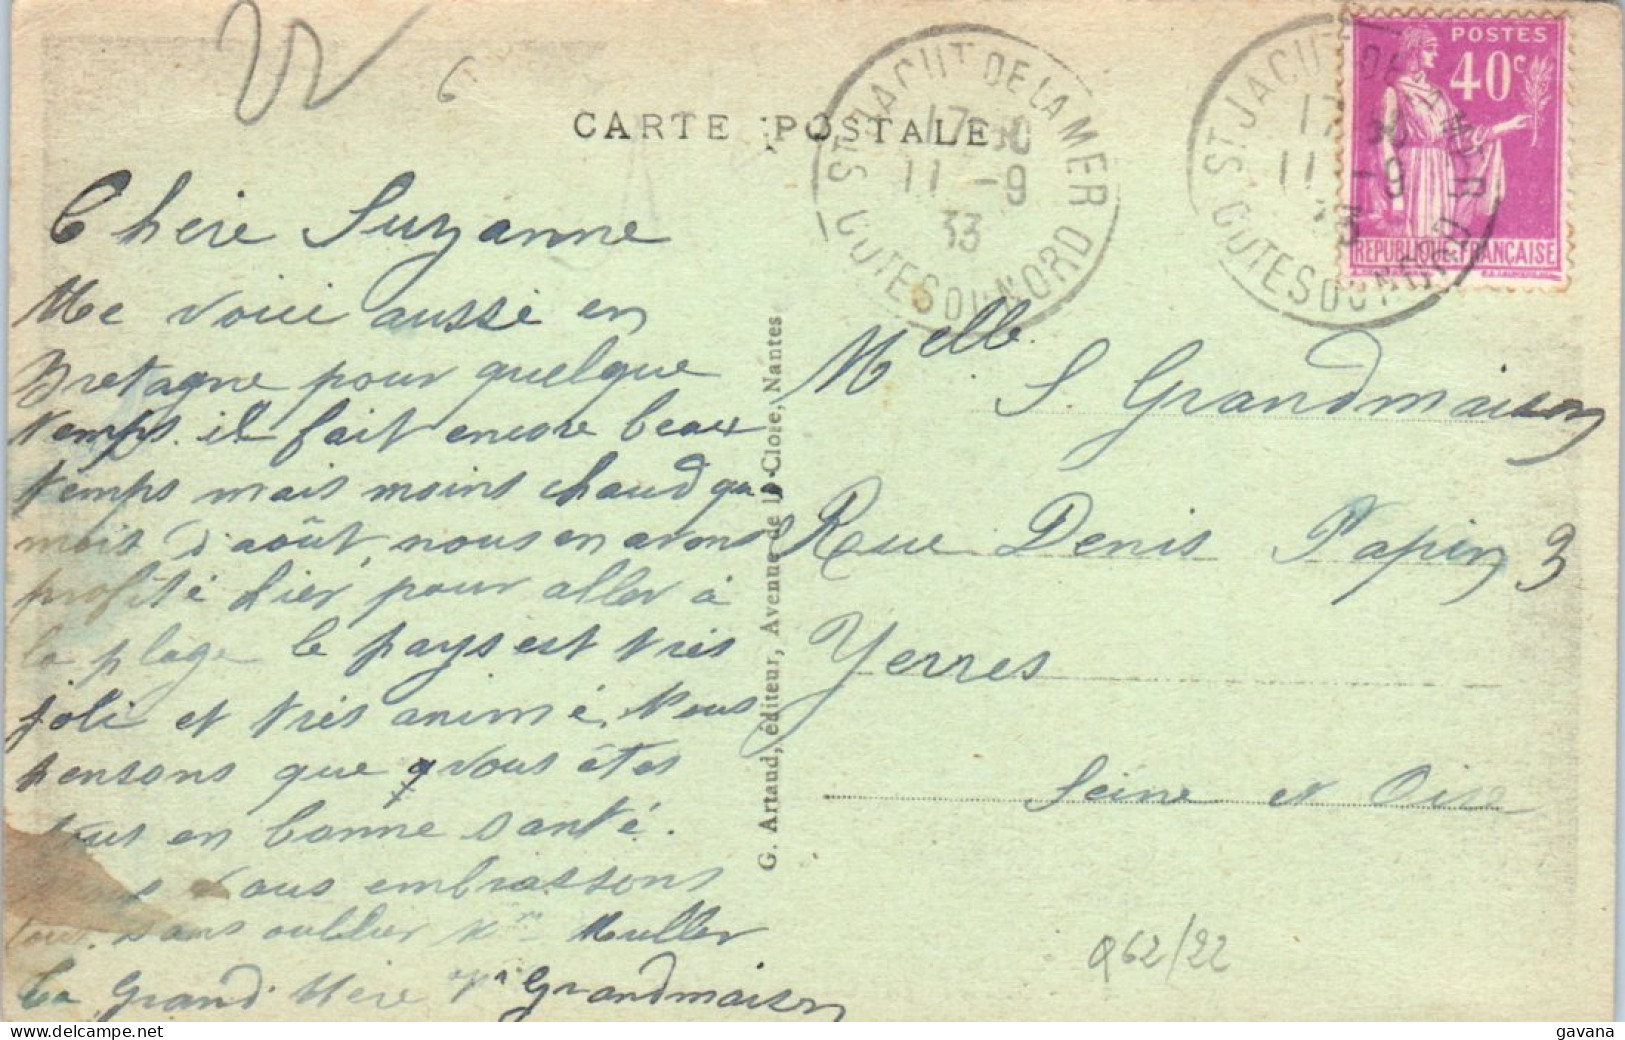 22
6
CARTE POSTALE
ST JACUT DE LA MER
17 30
11 -9
33
COTES DU NORD
ST JACUT DE LA MER
17 30
11 -9
33
COTES DU NORD
POSTES
40c
REPUBLIQUE FRANÇAISE
Chère Suzanne
Me voici aussi en
Bretagne pour quelque
temps. il fait encore beau
temps mais moins chaud qu'au
mois d'août, nous en avons
profité hier pour aller à
la plage le pays est très
joli et très animé. Nous
pensons que vous êtes
tous en bonne santé.
Nous vous embrassons
tous, sans oublier Mme Muller
Ta Grand Mère Grandmaison
G. Artaud, éditeur, Avenue de la Close, Nantes
Melle
S. Grandmaison
Rue Denis Papin 3
Yerres
Seine et Oise
962/22
gavana